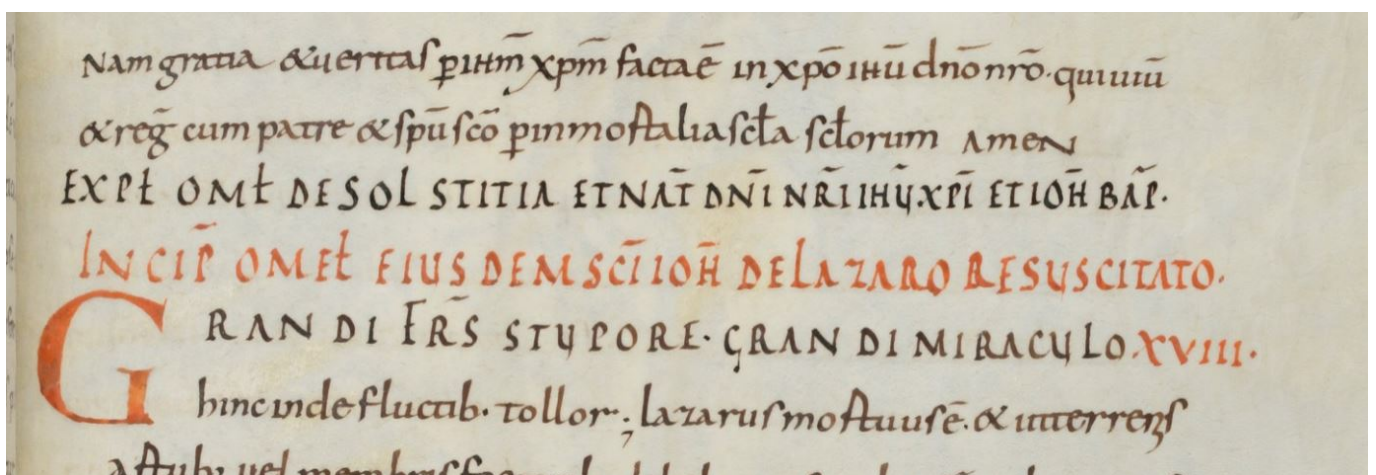 Nam gratia &ueritas p̲ ihm̄ xpm̄ facta ē in xpō ihū dnō nrō· qui uiuit̄
& reḡ cum patre & sp̄u scō p̲ inmortalia scl̄a scl̄orum AmeN
EXPŁ OMŁ DE SOLSTITIA ET NAT̄ DN̄I NR̄I IHŪ XPĪ ET IOH̄ BAP̄·
INCIP̄ OMEŁ EIUSDEM SC̄I IOH̄ DE LAZARO RESUSCITATO·
GRANDI FR̄S STUPORE· GRANDI MIRACULO XVIII·
hinc inde fluctib· tollor; lazarus mortuus ē· &